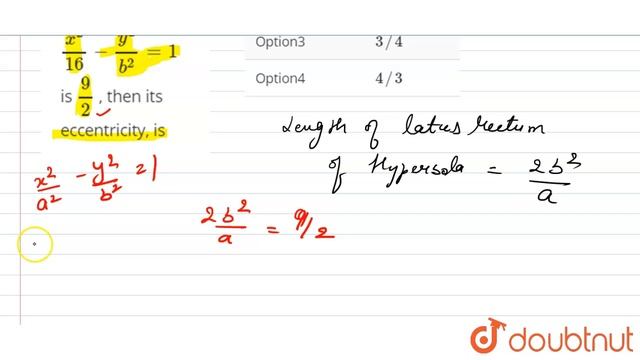 x²/16 - y²/b² = 1
is 9/2 , then its
eccentricity, is
Option3 3 / 4
Option4 4 / 3
Length of latus rectum
of Hypersola = 2b²/a
x²/a² - y²/b² = 1
2b²/a = 9/2
doubtnut